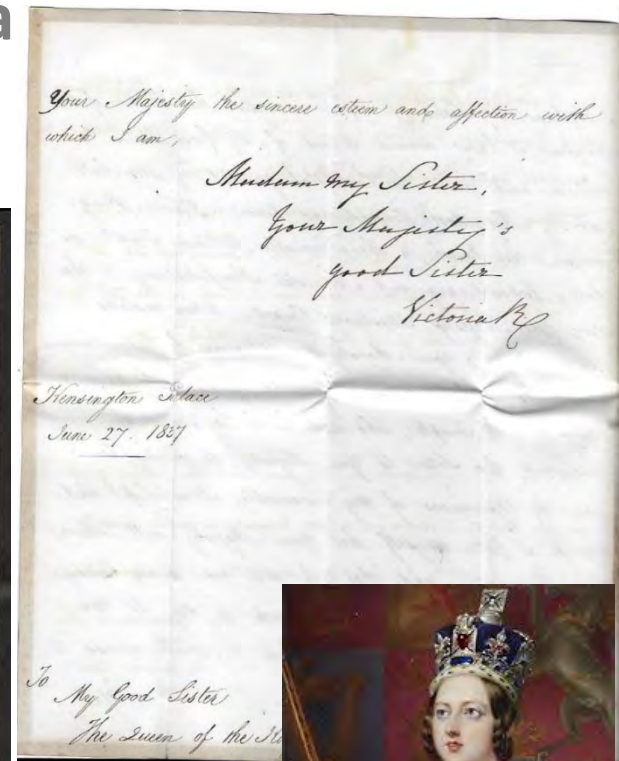 a
Your Majesty the sincere esteem and affection with
which I am,
Madam my Sister,
Your Majesty's
good Sister
Victoria R
Kensington Palace
June 27. 1837
To
My Good Sister
The Queen of the